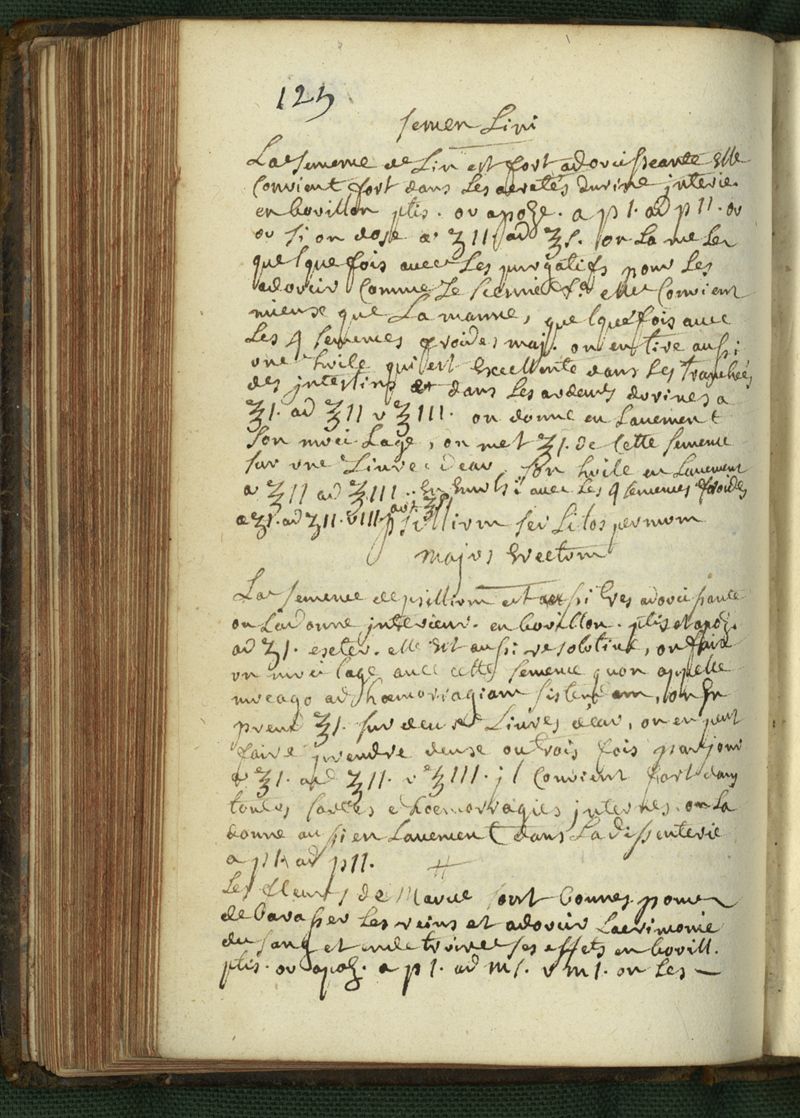 125
semen Lini
La semence de Lin est fort adoucissante elle
convient fort dans Les acretés durine interie.
en bouillon ptis. ou apoz. a p 1. ad p 11. ou
ou si on dose a ʒ 11. ad ℥ s. on La mesler
quelque fois avec Les purgatifs pour Les
adoucir comme Le senné elle convient
mieuse que La manne, quelque fois avec
Les 4 semences froides maj. on en tire aussi
une huile qui est Excellente dans Les tranchées
des intestins et dans Les ardeurs durines a
℥ 1. ad ℥ 11 v ℥ 111. on donne en Lavement
son muci Lage, on met ℥ 1. de cette semence
sur une Livre deau, son huile en Lavement
a ℥ 11 ad ℥ 111. avec Les 4 semences froides
a ʒ 1. ad ʒ 11. v 111. psillium
majus Erectum
La semence de psillium est aussi tres adoucissante
on La donne interieur. en bouillon. ptis et apoz.
ad ʒ 1. exeter. elle est aussi resolutive, on faire
un muci lage avec cette semence quon appelle
mucago ad hœmorragiam sistendam, on En
prend ℥ 1. sur deux Livres deau, on en peut
faire prendre deuse ou trois fois par jour
a ℥ 1. ad ℥ 11. v ℥ 111. il convient fort dans
toutes sortes dhœmorragies internes. on La
donne aussi en Lavement dans La dissenterie
a p 1. ad p 11.
Les fleurs de Mauve sont bonnes pour
debarasser Les reins et adoucir Lacrimonie
du sang et endetruire ses effets en bouill.
ptis. ou apoz. a p 1. ad m s. v m 1. on Les —